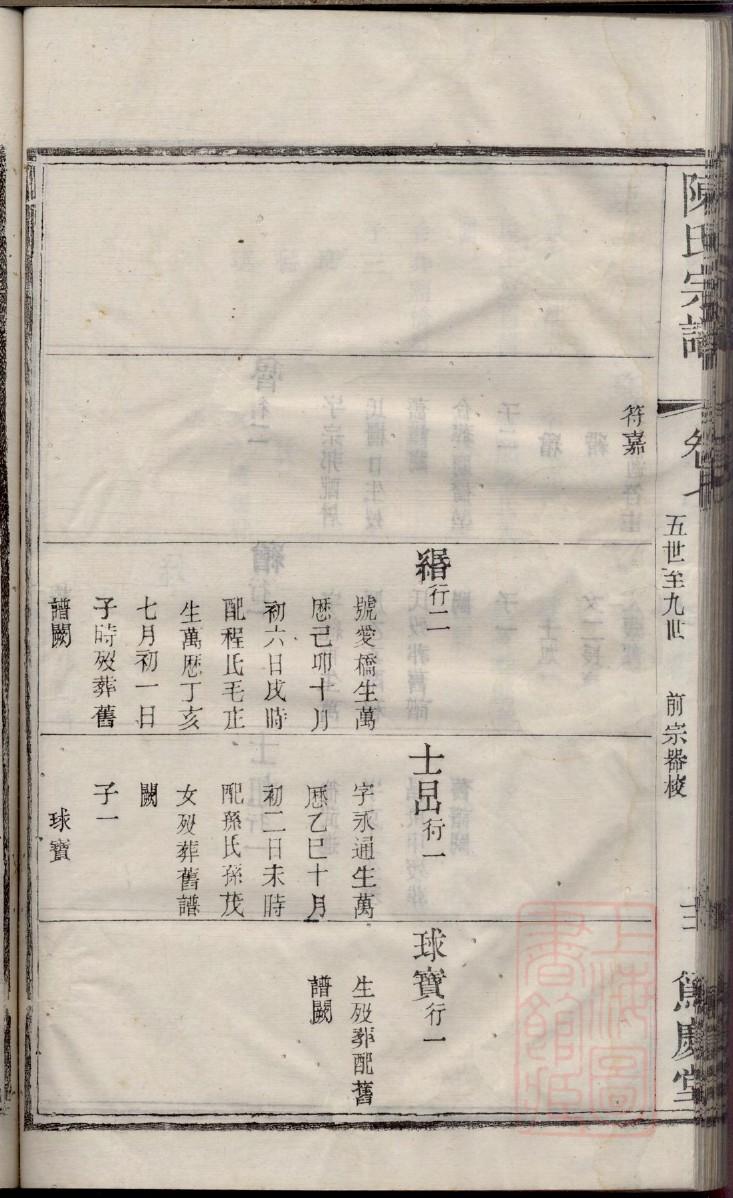 陳氏宗譜
卷七
五世至九世
前宗器校
篤慶堂
符嘉
緡行二
號愛橋生萬
曆己卯十月
初六日戌時
配程氏毛庄
生萬曆丁亥
七月初一日
子時歿葬舊
譜闕
士昌行一
字永通生萬
曆乙巳十月
初二日未時
配孫氏孫茂
女歿葬舊譜
闕
子一
球寶
球寶行一
生歿葬配舊
譜闕
上海圖
書館藏